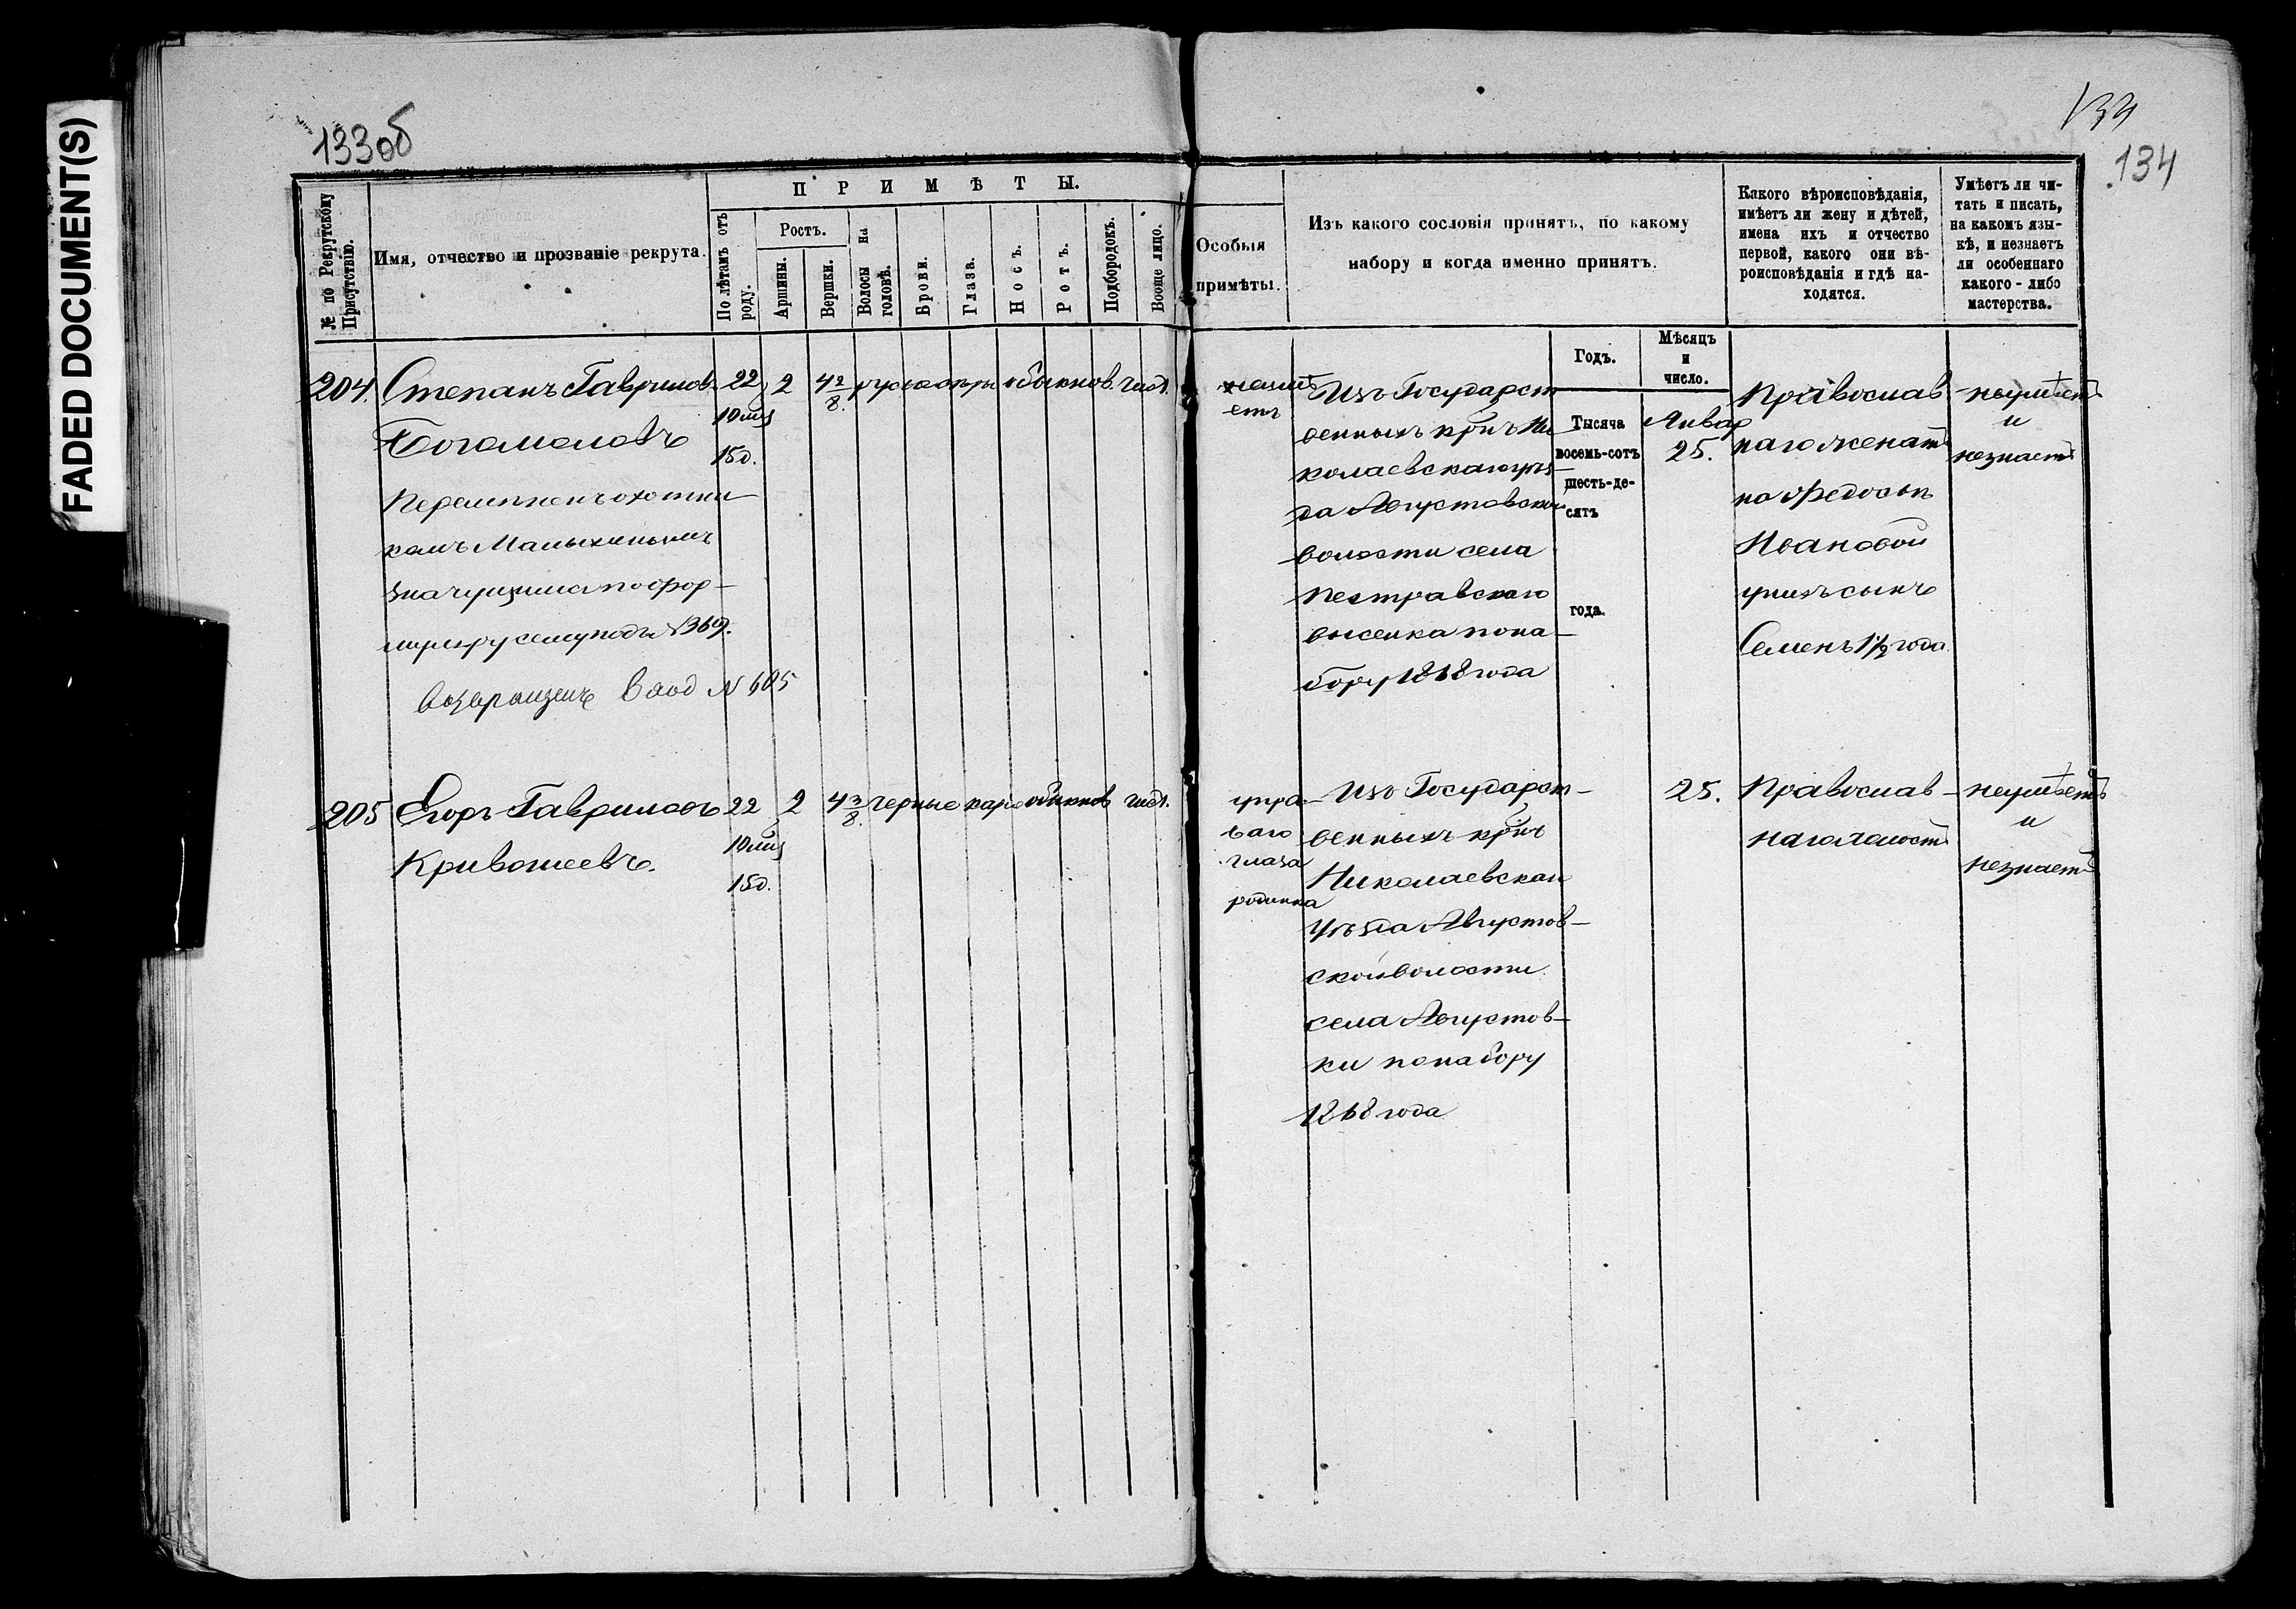 FADED DOCUMENT(S)
133об
134
134
№ по Рекрутскому Присутствію.
Имя, отчество и прозваніе рекрута.
ПРИМѢТЫ.
По лѣтамъ отъ роду.
Ростъ.
Аршины.
Вершки.
Волосы на головѣ.
Брови.
Глаза.
Носъ.
Ротъ.
Подбородокъ.
Вообще лицо.
Особыя
примѣты.
Изъ какого сословія принятъ, по какому
набору и когда именно принятъ.
Какого вѣроисповѣданія,
имѣетъ ли жену и дѣтей,
имена ихъ и отчество
первой, какого они вѣ-
роисповѣданія и гдѣ на-
ходятся.
Умѣетъ ли чи-
тать и писать,
на какомъ язы-
кѣ, и незнаетъ
ли особеннаго
какого-либо
мастерства.
Годъ.
Мѣсяцъ
и
число.
Тысяча
восемь-сотъ
шесть-де-
сятъ
года.
204. Степанъ Гавриловъ
Богомоловъ
Перемѣненъ охотни-
комъ Малыхинымъ
значущимся по фор-
муляру сему подъ №369.
возвращенъ вход №605
22
10 мц
15 д.
2
4 2/8.
русые сѣры обыкнов. чист.
неимѣ
етъ
Изъ Государст
венныхъ крнъ Ни
колаевскаго уѣз-
да Августовской
волости села
Пестравскаго
выселка по на-
бору 1868 года
Январ
25.
Православ
наго женатъ
на Федосьѣ
Ивановой
у нихъ сынъ
Семенъ 1 1/2 года
неумѣетъ
и
незнаетъ
205 Егоръ Гавриловъ
Кривошеевъ.
22
10 мц
15 д.
2
4 3/8.
черные каріе обыкнов чист.
у пра-
ваго
глаза
родинка
Изъ Государст-
венныхъ крнъ
Николаевскаго
Уѣзда Августов-
ской волости
села Августов-
ки по набору
1868 года
25.
Православ-
наго холостъ
неумѣетъ
и
незнаетъ